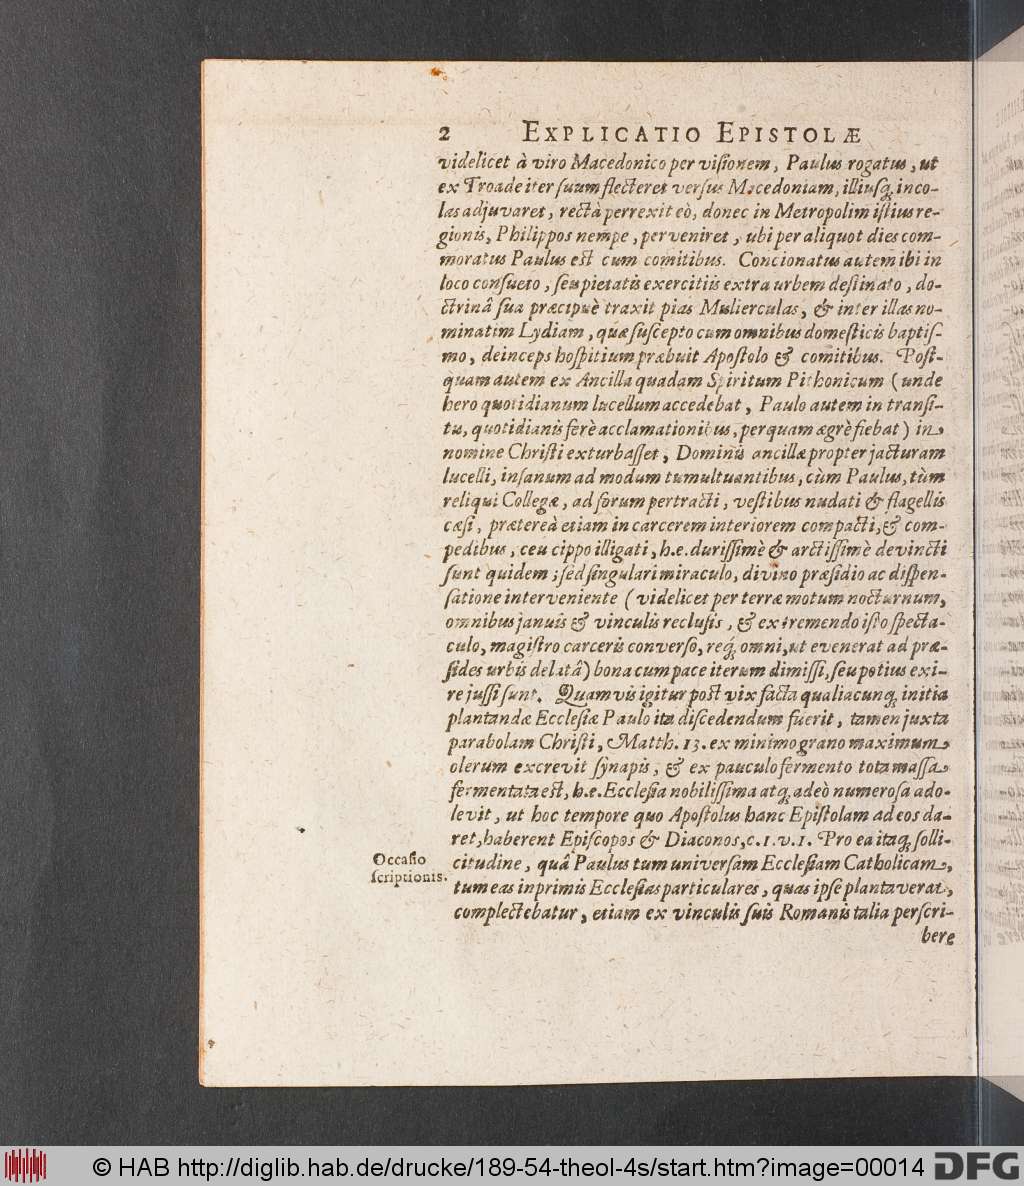 2 EXPLICATIO EPISTOLÆ
videlicet à viro Macedonico per viſionem, Paulus rogatus, ut
ex Troade iter ſuum flecteret verſus Macedoniam, illiuſq́; inco-
las adjuvaret, rectà perrexit eò, donec in Metropolim iſtius re-
gionis, Philippos nempe, perveniret, ubi per aliquot dies com-
moratus Paulus est cum comitibus. Concionatus autem ibi in
loco conſueto, ſeu pietatis exercitiis extra urbem deſtinato, do-
ctrinâ ſua præcipuè traxit pias Mulierculas, & inter illas no-
minatim Lydiam, quæ ſuſcepto cum omnibus domeſticis baptiſ-
mo, deinceps hoſpitium præbuit Apoſtolo & comitibus. Poſt-
quam autem ex Ancilla quadam Spiritum Pithonicum (unde
hero quotidianum lucellum accedebat, Paulo autem in tranſi-
tu, quotidianis ferè acclamationibus, perquam ægrè fiebat) in
nomine Chriſti exturbaſſet, Dominis ancillæ propter jacturam
lucelli, inſanum ad modum tumultuantibus, cùm Paulus, tùm
reliqui Collegæ, ad forum pertracti, veſtibus nudati & flagellis
cæſi, prætereà etiam in carcerem interiorem compacti, & com-
pedibus, ceu cippo illigati, h.e. duriſſimè & arctiſſimè devincti
ſunt quidem; ſed ſingulari miraculo, divino præſidio ac diſpen-
ſatione interveniente (videlicet per terræ motum nocturnum,
omnibus januis & vinculis recluſis, & ex tremendo iſto specta-
culo, magiſtro carceris converſo, req́; omni, ut evenerat ad præ-
ſides urbis delatâ) bona cum pace iterum dimiſſi, ſeu potius exi-
re juſſi ſunt. Quamvis igitur post vix facta qualiacunq́; initia
plantandæ Eccleſiæ Paulo ita diſcedendum fuerit, tamen juxta
parabolam Chriſti, Matth. 13. ex minimo grano maximum
olerum excrevit ſynapis, & ex pauculo fermento tota maſſa
fermentata est, h.e. Eccleſia nobiliſſima atq́; adeò numeroſa ado-
levit, ut hoc tempore quo Apoſtolus hanc Epiſtolam ad eos da-
ret, haberent Epiſcopos & Diaconos, c. 1. v. 1. Pro ea itaq́; ſolli-
Occaſio
ſcriptionis.
citudine, quâ Paulus tum univerſam Eccleſiam Catholicam,
tum eas inprimis Eccleſias particulares, quas ipſe plantaverat,
complectebatur, etiam ex vinculis ſuis Romanis talia perſcri-
bere
© HAB http://diglib.hab.de/drucke/189-54-theol-4s/start.htm?image=00014 DFG